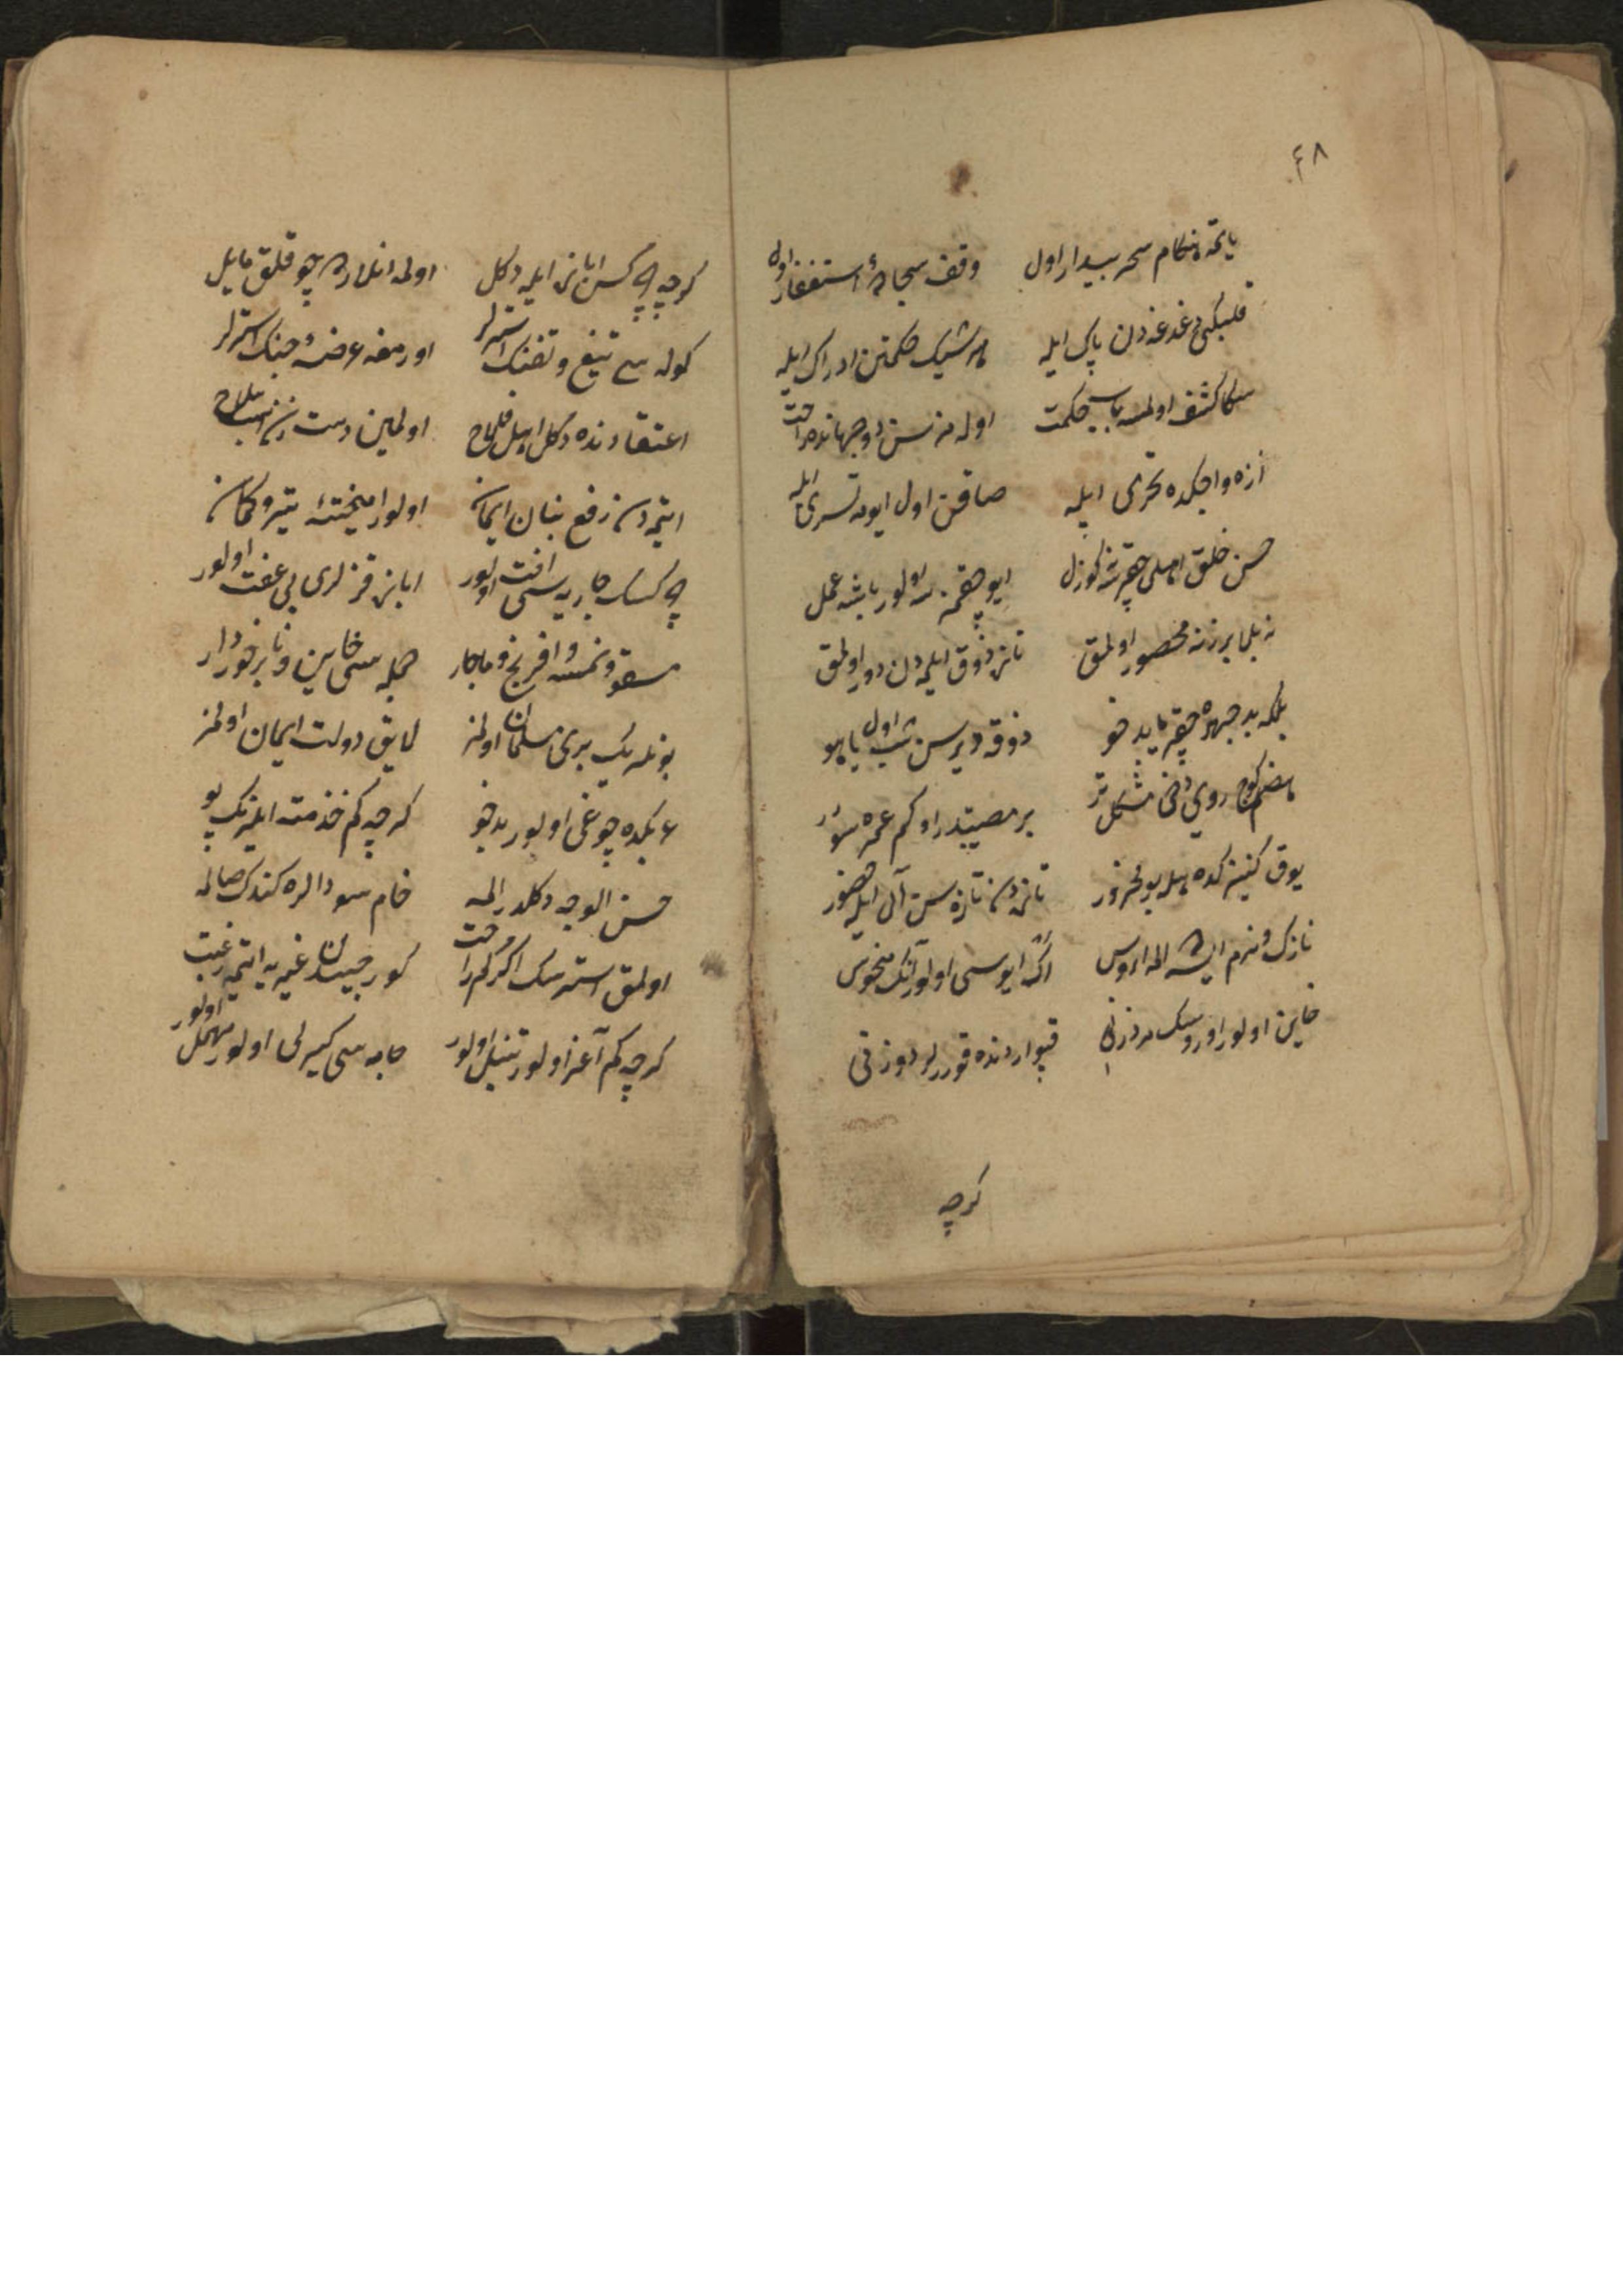 ٤٨
یاتمه هنکام سحر بیدار اول وقف سجادهٔ استغفار اول
قلبکی دغدغه‌دن پاک ایله هر شیئک حکمتن ادراک ایله
سکا کشف اولمسه باب حکمت اوله‌مزسن دو جهانده راحت
آزه واجکده تحری ایله صاقن اول ایوده تسری ایله
حسن خلق اهلی چقرسه کوزل ایو چقمزسه اولور باشه عمل
نه بلا بر زنه محصور اولمق تازه ذوق ایلمدن دور اولمق
بلکه بد چهره چقر یا بد خو ذوقه دیرسن شب اول یاهو
هضم کوج روی دخی مشکلتر بر مصیبتدر او کم عمره سورر
یوق کنیزکده هله بو محذور تازه‌دن تازه‌سن آل ایله حضور
نازک و نرم ایسه اله اروس اک ایوسی اولور آنک منحوس
خاین اولور اوروسک مرد زنی قپو اردنده قورلر دوزنی
کرچه
کرچه چرکسن اباز ایله دکل اولمه انلرده چو قلق مایل
کوله‌سی تیغ و تفنک استرلر اورمغه عرضهٔ جنک استرلر
اعتقادنده دکل اهل فلاح اولمین دست زن اسباب سلاح
ایتمدن رفع بنان ایمانه اولور آمیختهٔ تیر و کمان
چرکسک جاریه‌سی آفت اولور ابازه قزلری بی عفت اولور
مسقو و نمسه و افرنج و ماجار جمله‌سی خاین و نابرخوردار
بونلرک بری مسلمان اولمز لایق دولت ایمان اولمز
عبکده چوغی اولور بدخو کرچه کم خذمته ایلر تک پو
حسن الوجه دکلدر اله خام سودالره کندک صالمه
اولمق استرسک اکر کم راحت کورجیدن غیریه ایتمه رغبت
کرچه کم آغز اولور تنبل اولور جامه‌سی کیرلی اولور مهمل اولور